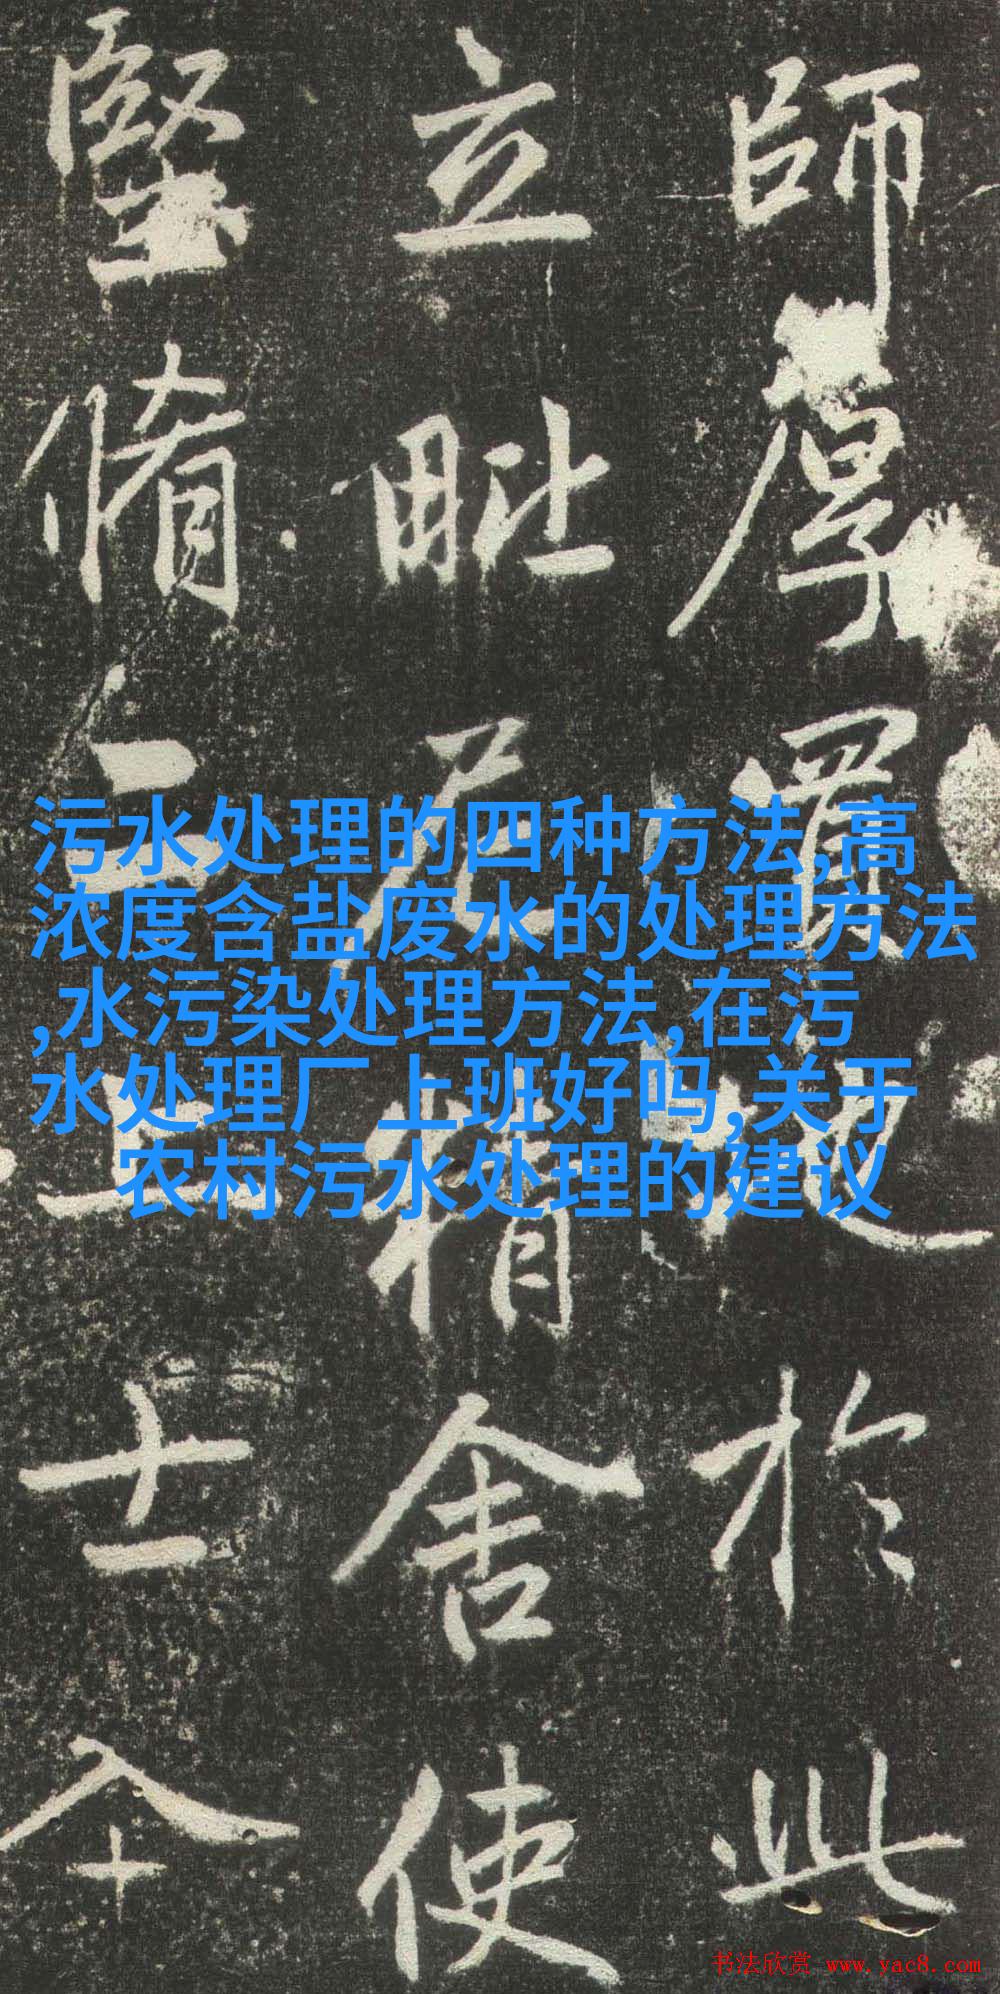 污水处理的四种方法,高
浓度含盐废水的处理方法
,水污染处理方法,在污
水处理厂上班好吗,关于
农村污水处理的建议
師厚置於此
立毗尼精舍使
堅脩士
书法欣赏 www.yac8.com